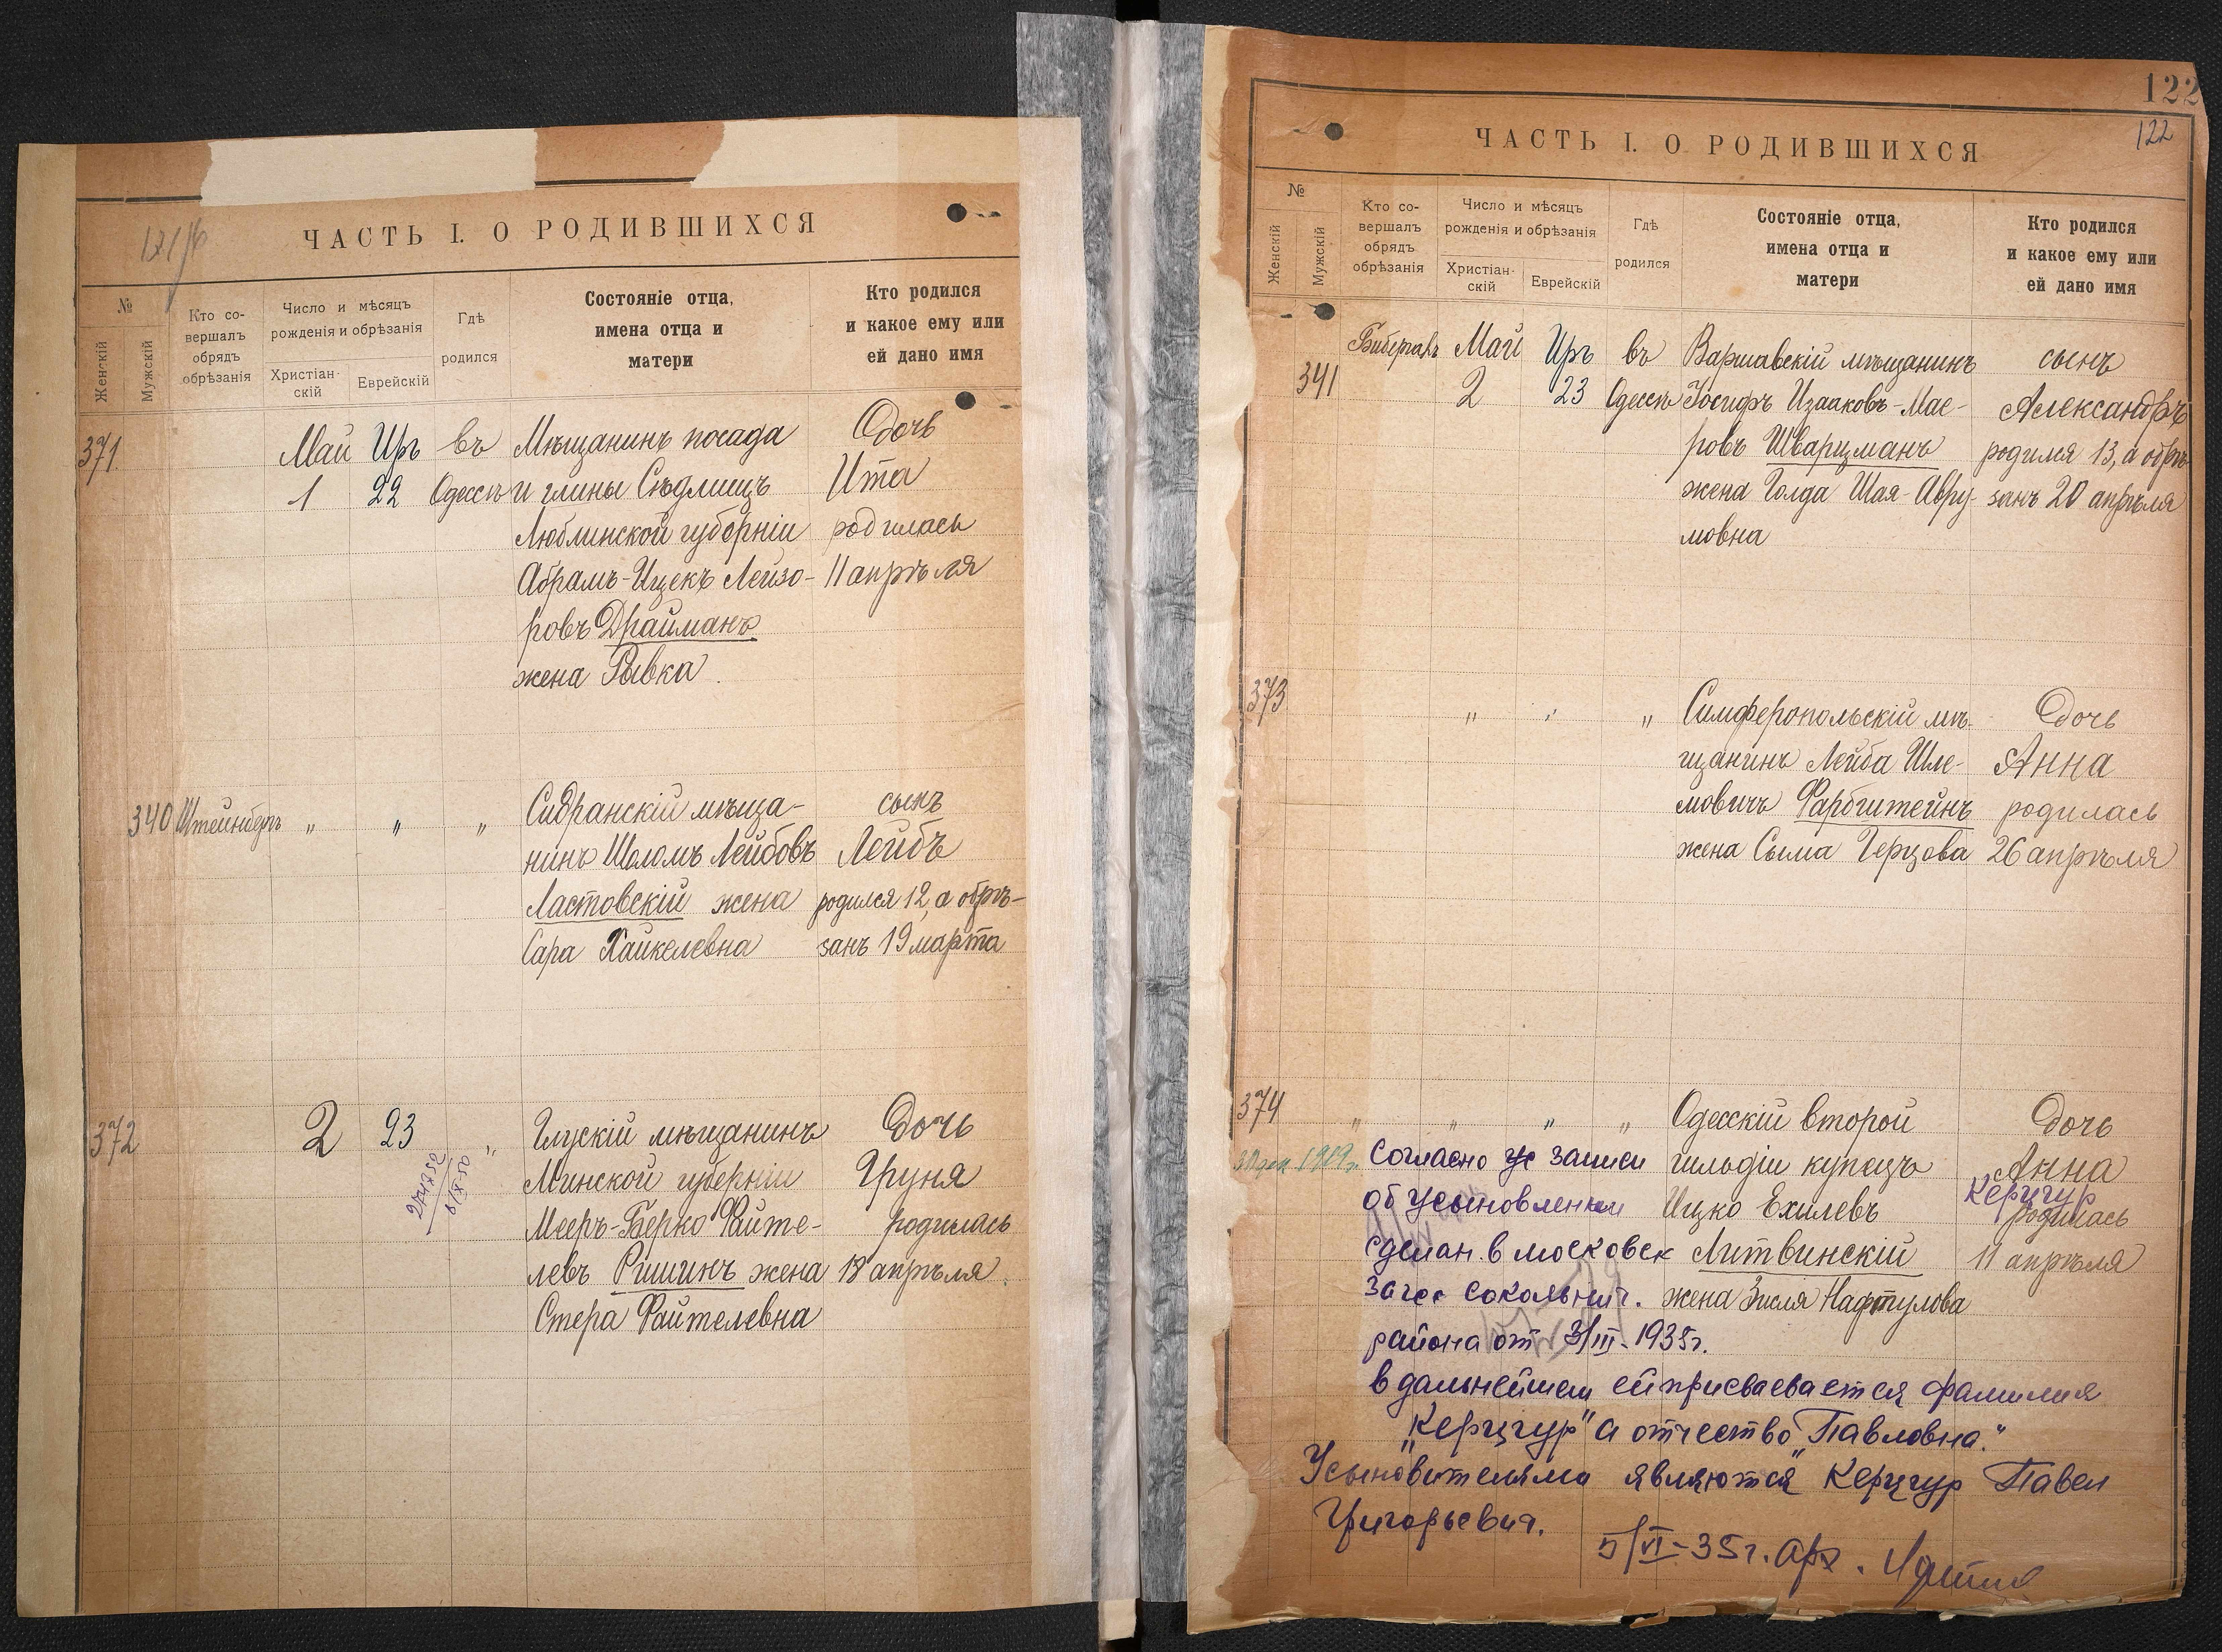 ЧАСТЬ I. О РОДИВШИХСЯ
№
Женскій
Мужскій
Кто со-
вершалъ
обрядъ
обрѣзанія
Число и мѣсяцъ
рожденія и обрѣзанія
Христіан-
скій
Еврейскій
Гдѣ
родился
Состояніе отца,
имена отца и
матери
Кто родился
и какое ему или
ей дано имя
371
Май Иръ въ Мѣщанинъ посада Дочь
1 22 Одессѣ и глины Сѣдлищъ Ита
Люблинской губерніи родилась
Абрамъ-Ицекъ Лейзо- 11 апрѣля
ровъ Драйманъ
жена Рывка
340 Штейнберъ " " " Сидранскій мѣща- сынъ
нинъ Шоломъ Лейбовъ Лейбъ
Ластовскій жена родился 12, а обрѣ-
Сара Хайкелевна занъ 19 марта
372 2 23 " Глускій мѣщанинъ Дочь
Минской губерніи Груня
Мееръ-Берко Файте- родилась
левъ Ришинъ жена 18 апрѣля
Стера Файтелевна
122
122
ЧАСТЬ I. О РОДИВШИХСЯ
№
Женскій
Мужскій
Кто со-
вершалъ
обрядъ
обрѣзанія
Число и мѣсяцъ
рожденія и обрѣзанія
Христіан-
скій
Еврейскій
Гдѣ
родился
Состояніе отца,
имена отца и
матери
Кто родился
и какое ему или
ей дано имя
Май Иръ въ Варшавскій мѣщанинъ сынъ
341 2 23 Одессѣ Іосифъ Изааковъ-Мае- Александръ
ровъ Шварцманъ родился 13, а обрѣ-
жена Голда Шая-Авру- занъ 20 апрѣля
мовна
373 " " " Симферопольскій мѣ- Дочь
щанинъ Лейба Шле- Анна
мовичъ Фарбштейнъ родилась
жена Сыма Герцова 26 апрѣля
374 " " " " Одесскій второй Дочь
гильдіи купецъ Анна
Керцгур
Ицко Ехилевъ родилась
Литвинскій 11 апрѣля
жена Зисля Нафтулова
Согласно записи
об усыновлении
сделан. в московск
Загсе Сокольнич.
района от 3/III-1935г.
в дальнейшем ей присваевается фамилия
"Керцгур" а отчество "Павловна."
Усыновителями являются Керцгур Павел
Григорьевич.
5/VI-35г. Арх.